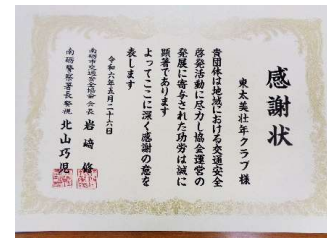 感謝状
東太美壮年クラブ 様
貴団体は地域における交通安全
啓発活動に尽力し協会運営の
発展に寄与された功労は誠に
顕著であります
よってここに深く感謝の意を
表します
令和六年五月二十六日
南砺市交通安全協会 会長 岩﨑 修
南砺警察署長 警視 北山巧児